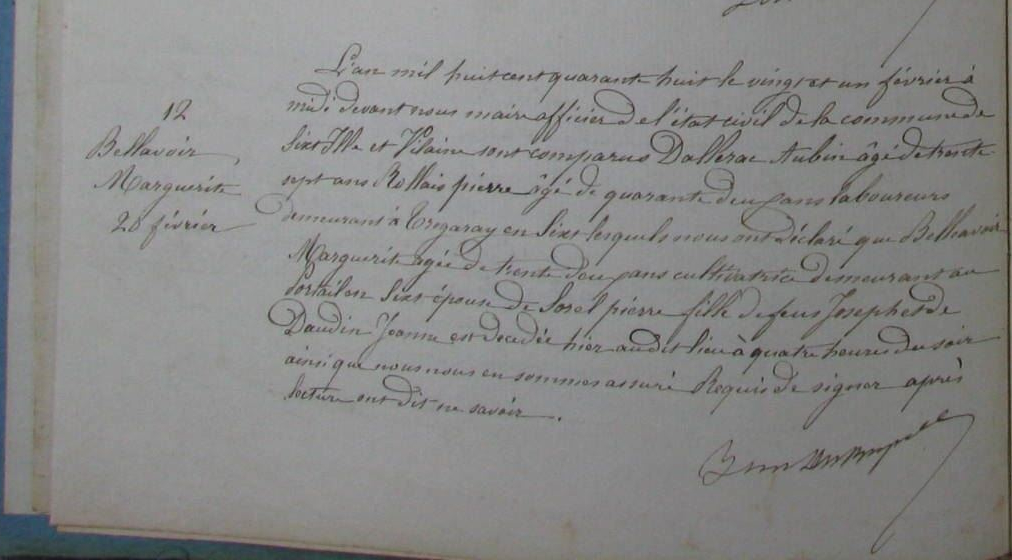 L'an mil huit cent quarante huit le vingt et un février à
12
midi devant nous maire officier de l'état civil de la commune de
Bellavoir
Sixt Ille et Vilaine sont comparus Dallerac Aubin âgé de trente
Marguerite
sept ans Rollais pierre âgé de quarante deux ans laboureurs
20 février
demeurant à Trégaray en Sixt lesquels nous ont déclaré que Bellavoir
Marguerite agée de trente deux ans cultivatrice demeurant au
Portail en Sixt épouse de Sorel pierre fille de feus Joseph et de
Daudin Jeanne est decedée hier audit lieu à quatre heures du soir
ainsi que nous nous en sommes assuré Requis de signer après
lecture ont dit ne savoir.